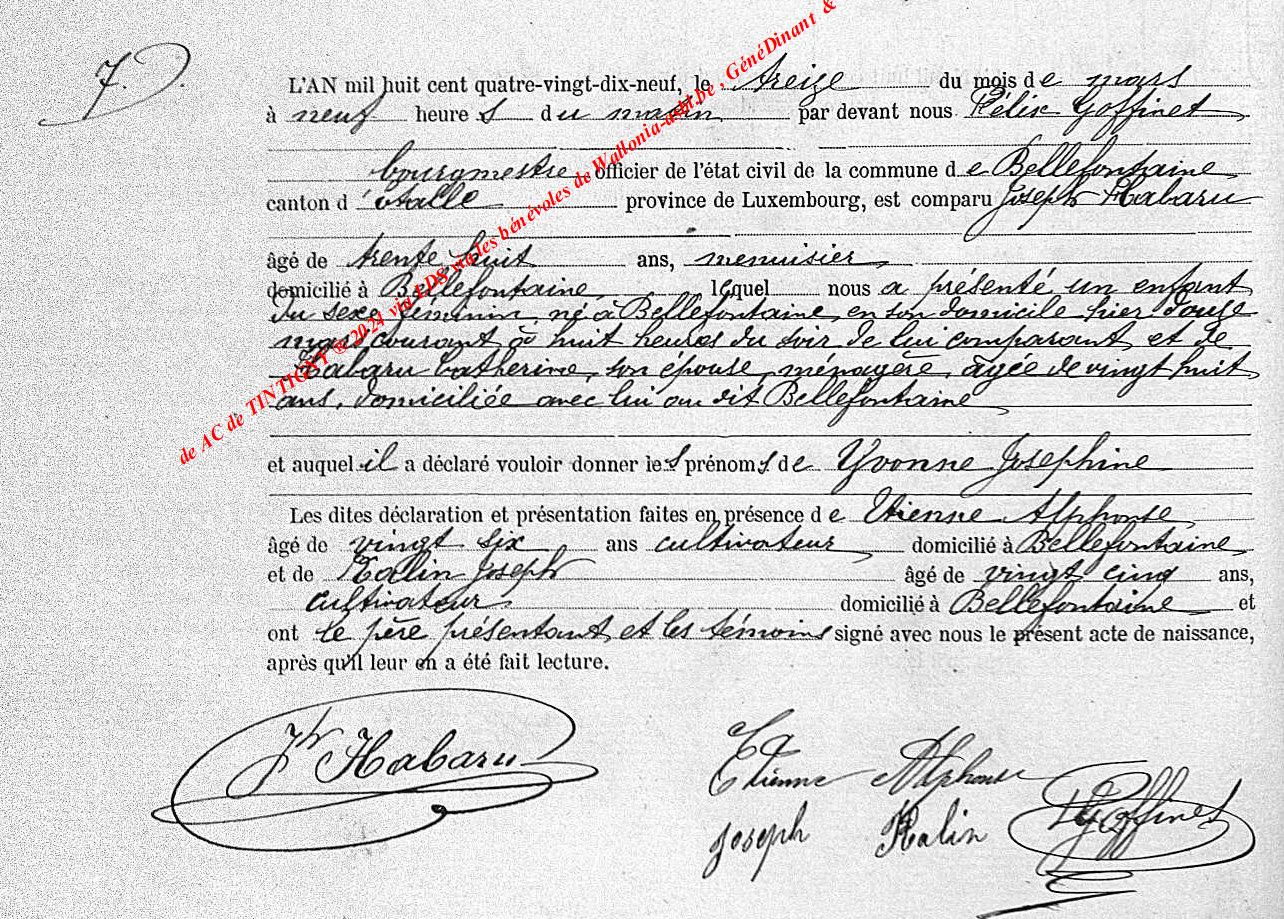 7.
L'AN mil huit cent quatre-vingt-dix-neuf, le treize du mois de mars
à neuf heures du matin par devant nous Félix Goffinet
bourgmestre officier de l'état civil de la commune de Bellefontaine,
canton d'étalle province de Luxembourg, est comparu Joseph Habaru
âgé de trente huit ans, menuisier,
domicilié à Bellefontaine, lequel nous a présenté un enfant
du sexe féminin, né à Bellefontaine, en son domicile hier douze
mars courant à huit heures du soir de lui comparant et de
Habaru Catherine, son épouse, ménagère, âgée de vingt huit
ans, domiciliée avec lui au dit Bellefontaine
et auquel il a déclaré vouloir donner les prénoms de Yvonne Joséphine
Les dites déclaration et présentation faites en présence de Etienne Alphonse,
âgé de vingt six ans cultivateur, domicilié à Bellefontaine,
et de Halin Joseph âgé de vingt cinq ans,
cultivateur, domicilié à Bellefontaine et
ont le père présentant et les témoins signé avec nous le présent acte de naissance,
après qu'il leur en a été fait lecture.
Jh Habaru
Etienne Alphonse
Joseph Halin
Goffinet
de AC de TINTIGNY ® 2024 via LDS via les bénévoles de Wallonia-asbl.be , GénéDinant &